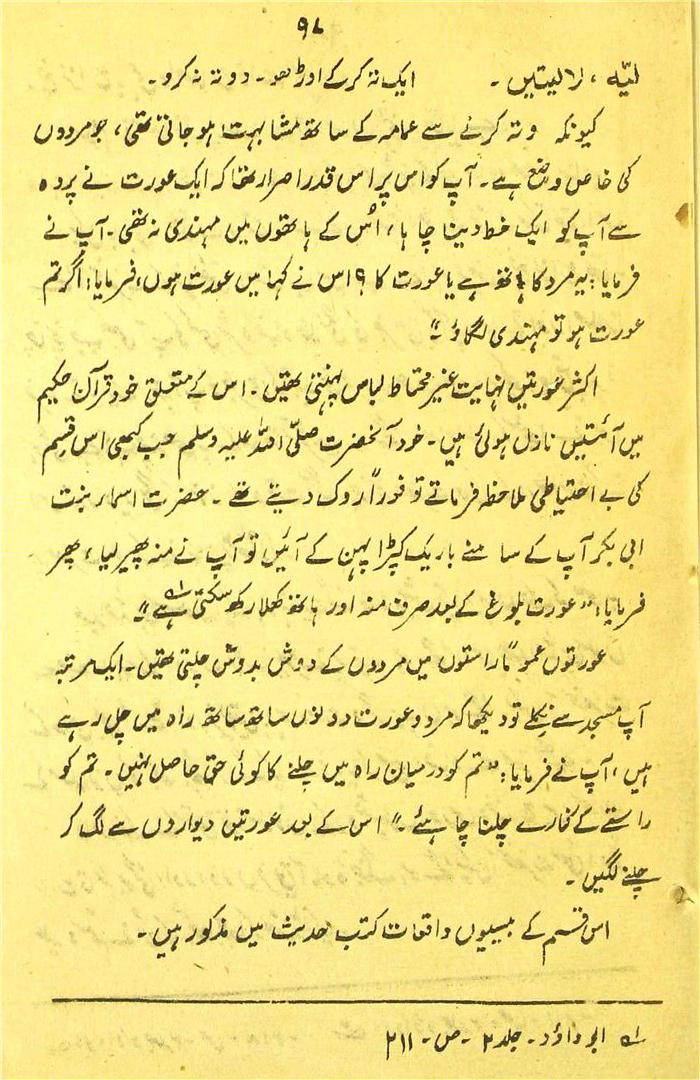 ۹۷
لیّه، لا لیتیں۔ ایک تہ کر کے اوڑھو۔ دو تہ نہ کرو۔
کیونکہ دو تہ کرنے سے عمامہ کے ساتھ مشابہت ہو جاتی تھی، جو مردوں
کی خاص وضع ہے۔ آپ کو اس پر اس قدر اصرار تھا کہ ایک عورت نے پردہ
سے آپ کو ایک خط دینا چاہا، اُس کے ہاتھوں میں مہندی نہ تھی۔ آپ نے
فرمایا: یہ مرد کا ہاتھ ہے یا عورت کا؟ اس نے کہا میں عورت ہوں، فرمایا: اگر تم
عورت ہو تو مہندی لگاؤ"
اکثر عورتیں نہایت غیر محتاط لباس پہنتی تھیں۔ اس کے متعلق خود قرآن حکیم
میں آئتیں نازل ہوئی ہیں۔ خود آنحضرت صلی اللہ علیہ وسلم جب کبھی اس قسم
کی بے احتیاطی ملاحظہ فرماتے تو فوراً روک دیتے تھے۔ حضرت اسمار بنت
ابی بکر آپ کے سامنے باریک کپڑا پہن کے آئیں تو آپ نے منہ پھیر لیا، پھر
فرمایا: "عورت بلوغ کے بعد صرف منہ اور ہاتھ کھلا رکھ سکتی ہے" لہ
عورتوں عموماً راستوں میں مردوں کے دوش بدوش چلتی تھیں۔ ایک مرتبہ
آپ مسجد سے نکلے تو دیکھا کہ مرد و عورت دونوں ساتھ ساتھ راہ میں چل رہے
ہیں، آپ نے فرمایا: "تم کو درمیان راہ میں چلنے کا کوئی حق حاصل نہیں۔ تم کو
راستے کے کنارے چلنا چاہئے۔" اس کے بعد عورتیں دیواروں سے لگ کر
چلنے لگیں۔
اس قسم کے بیسیوں واقعات کتب حدیث میں مذکور ہیں۔
لہ ابو داؤد۔ جلد ۲۔ ص۔ ۲۱۱